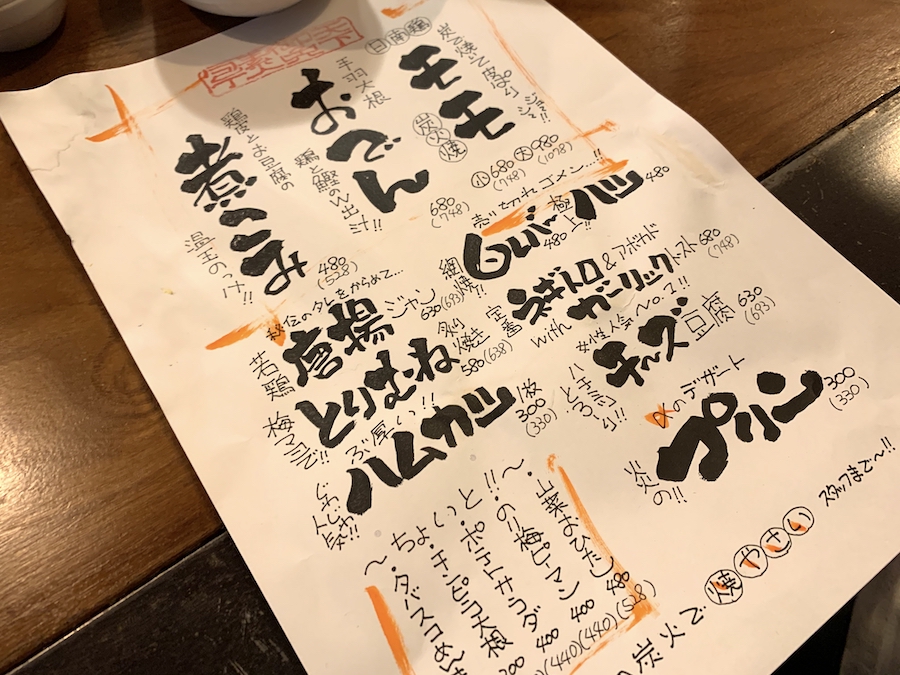 日南鶏
炭で焼いて皮ぱりジュージュー!!
モモ
炭火焼
小 680 (748) 大 980 (1078)
手羽大根
おでん
鶏と鰹のW出汁!!
680 (748)
鶏皮とお豆腐の
煮こみ
温玉のっけ!!
480 (528)
売り切れゴメン…!!
白レバー
480
極上!!
ハツ
480
秘伝のタレをからめて…
若鶏
唐揚
ジャン
630 (693)
網焼!!
定番
ネギトロ & アボカド
with ガーリックトースト 680 (748)
梅マヨで!!
とりむね
炙り焼き
580 (638)
女性人気No.1!!
チーズ豆腐 630 (693)
ハチミツとろり!!
ぶ厚い!!
ハムカツ
1枚 300 (330)
じわじわ人気!!
〆のデザート
プリン
300 (330)
炎の!!
〜ちょいと!!〜
・山菜おひたし 480 (528)
・のり梅ピーマン 400 (440)
・ポテトサラダ 400 (440)
・チンピラ大根
・タバスコめん
炭火で焼やさい
スタッフまで〜!!